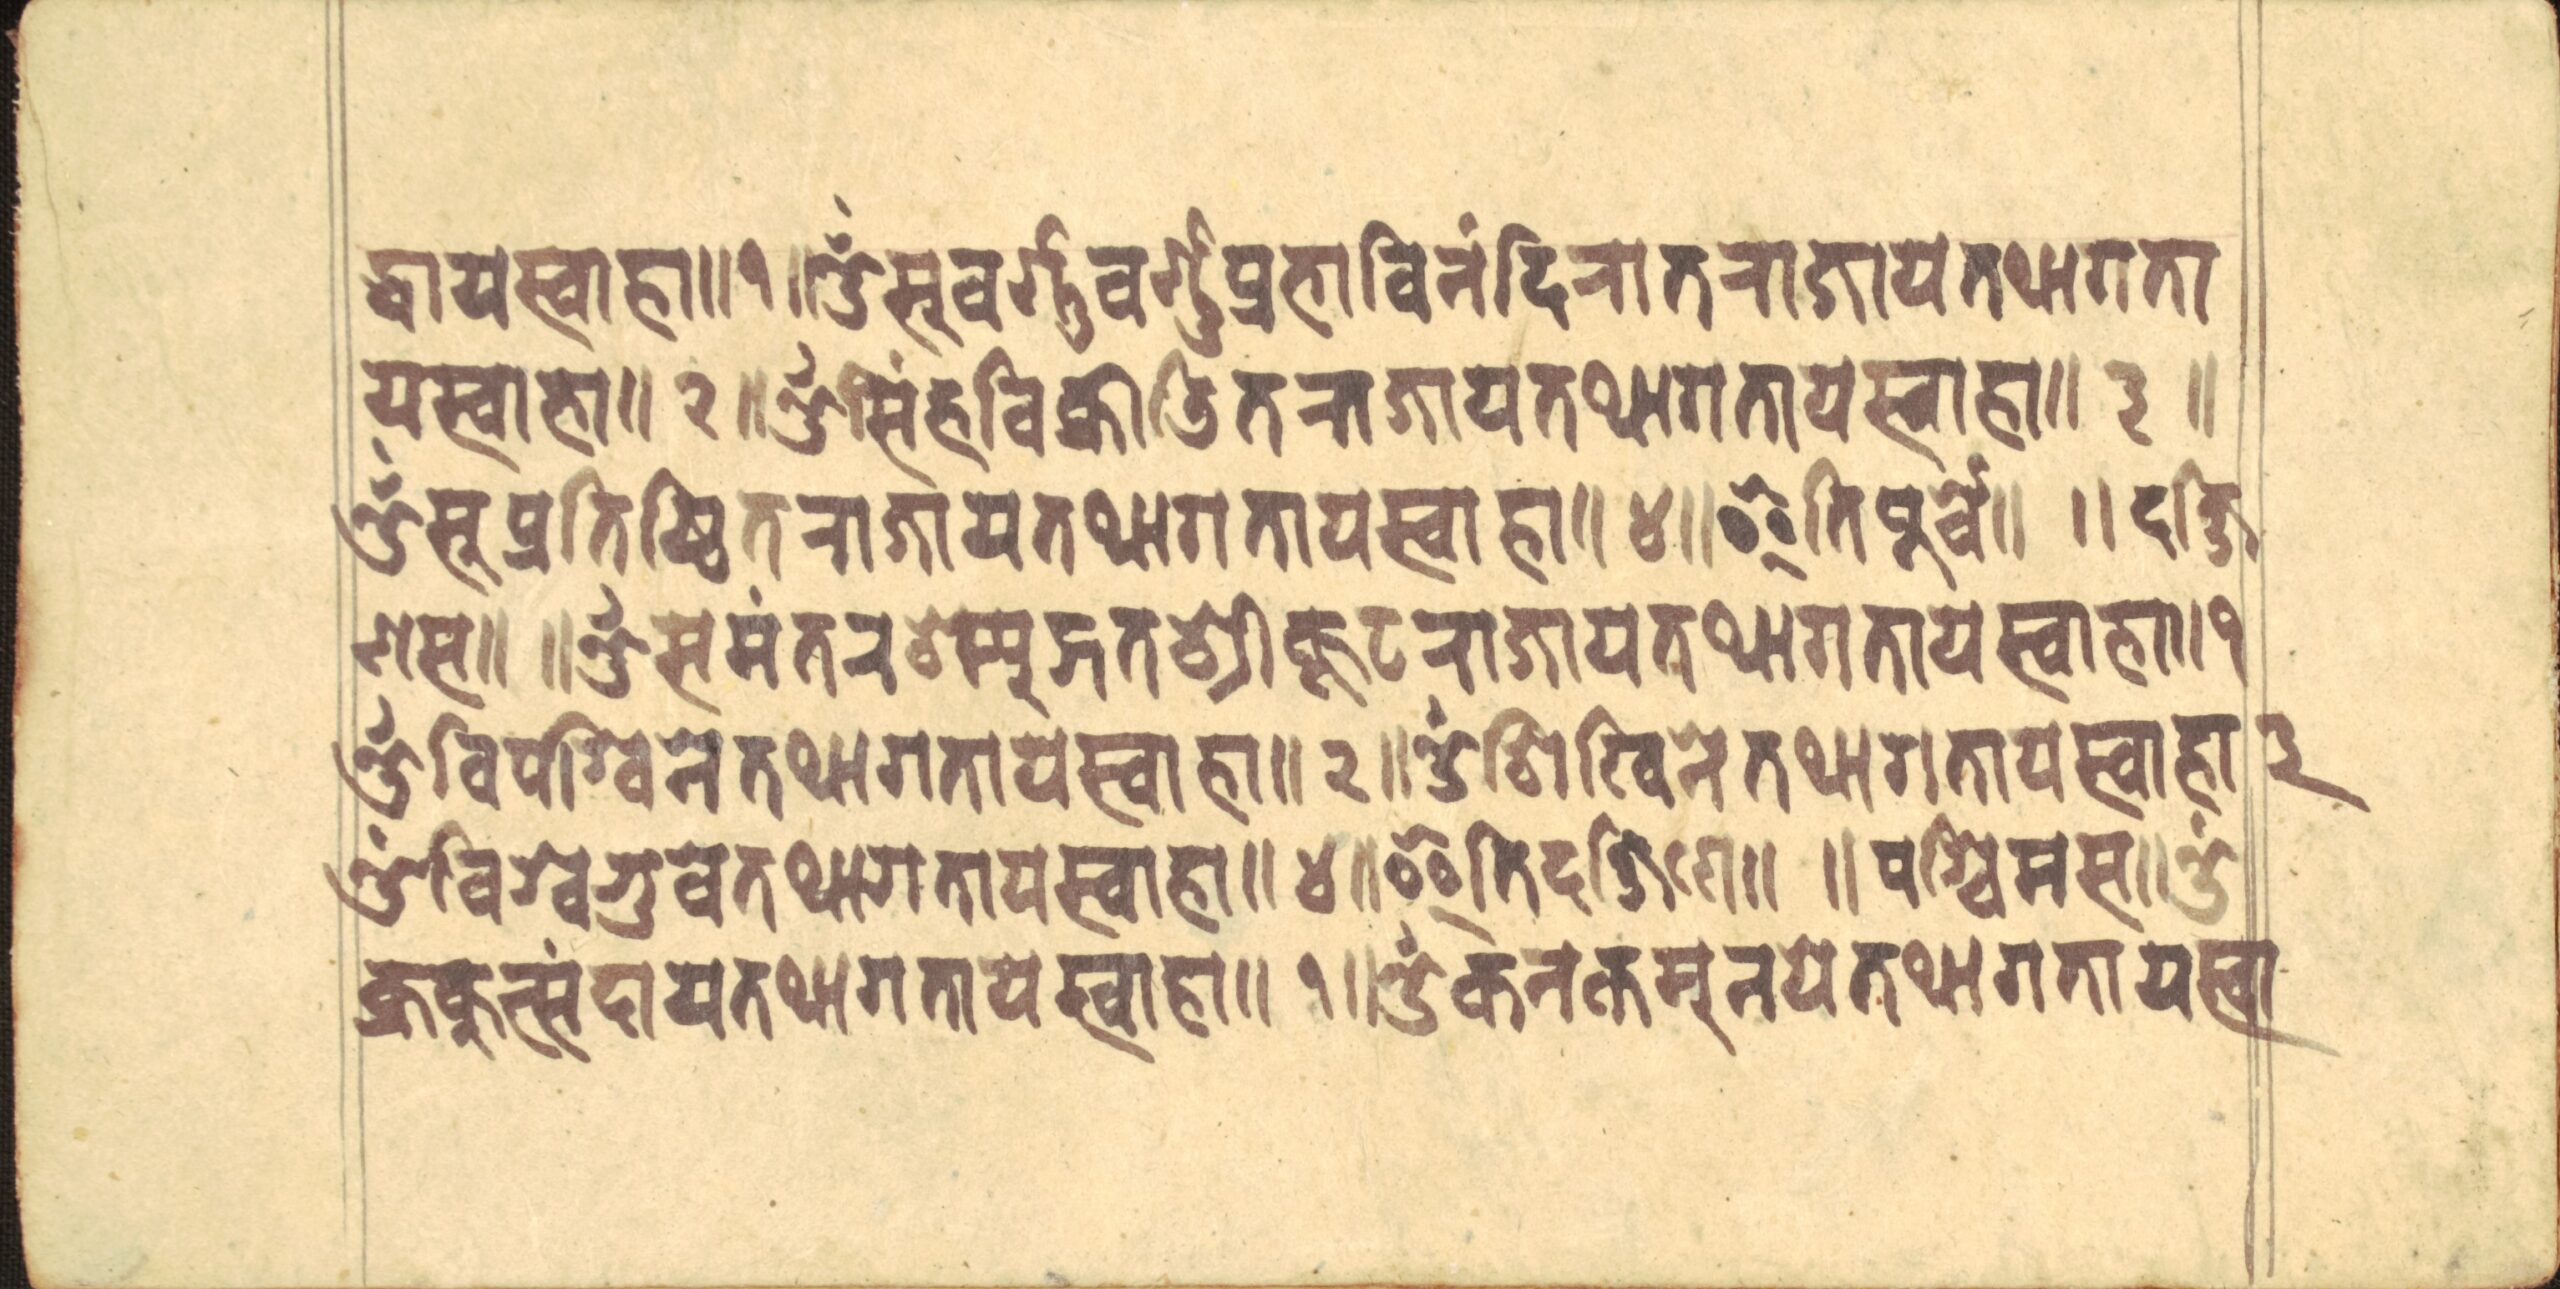 द्धायस्वाहा॥१॥ॐसूवर्ण्णवर्ण्णप्रहाविनंदिरातराजायतथागता
यस्वाहा॥ २ ॥ॐसिंहविक्रीडितराजायतथागतायस्वाहा॥ ३ ॥
ॐसूप्रतिष्ठितराजायतथागतायस्वाहा॥ ४ ॥ इतिपूर्व्वे॥ ॥ दक्षि
णस॥ ॥ॐसमंतरश्म्यूद्गतश्रीकूटराजायतथागतायस्वाहा॥१
ॐविपश्विनेतथागतायस्वाहा॥ २ ॥ॐशिखिनेतथागतायस्वाहा ३
ॐविश्वेभुवेतथागतायस्वाहा॥ ४ ॥ इतिदक्षिणे॥ ॥ पश्चिमस॥ॐ
क्रकुत्संदायतथागतायस्वाहा॥ १ ॥ॐकनकमूनयेतथागतायस्वा